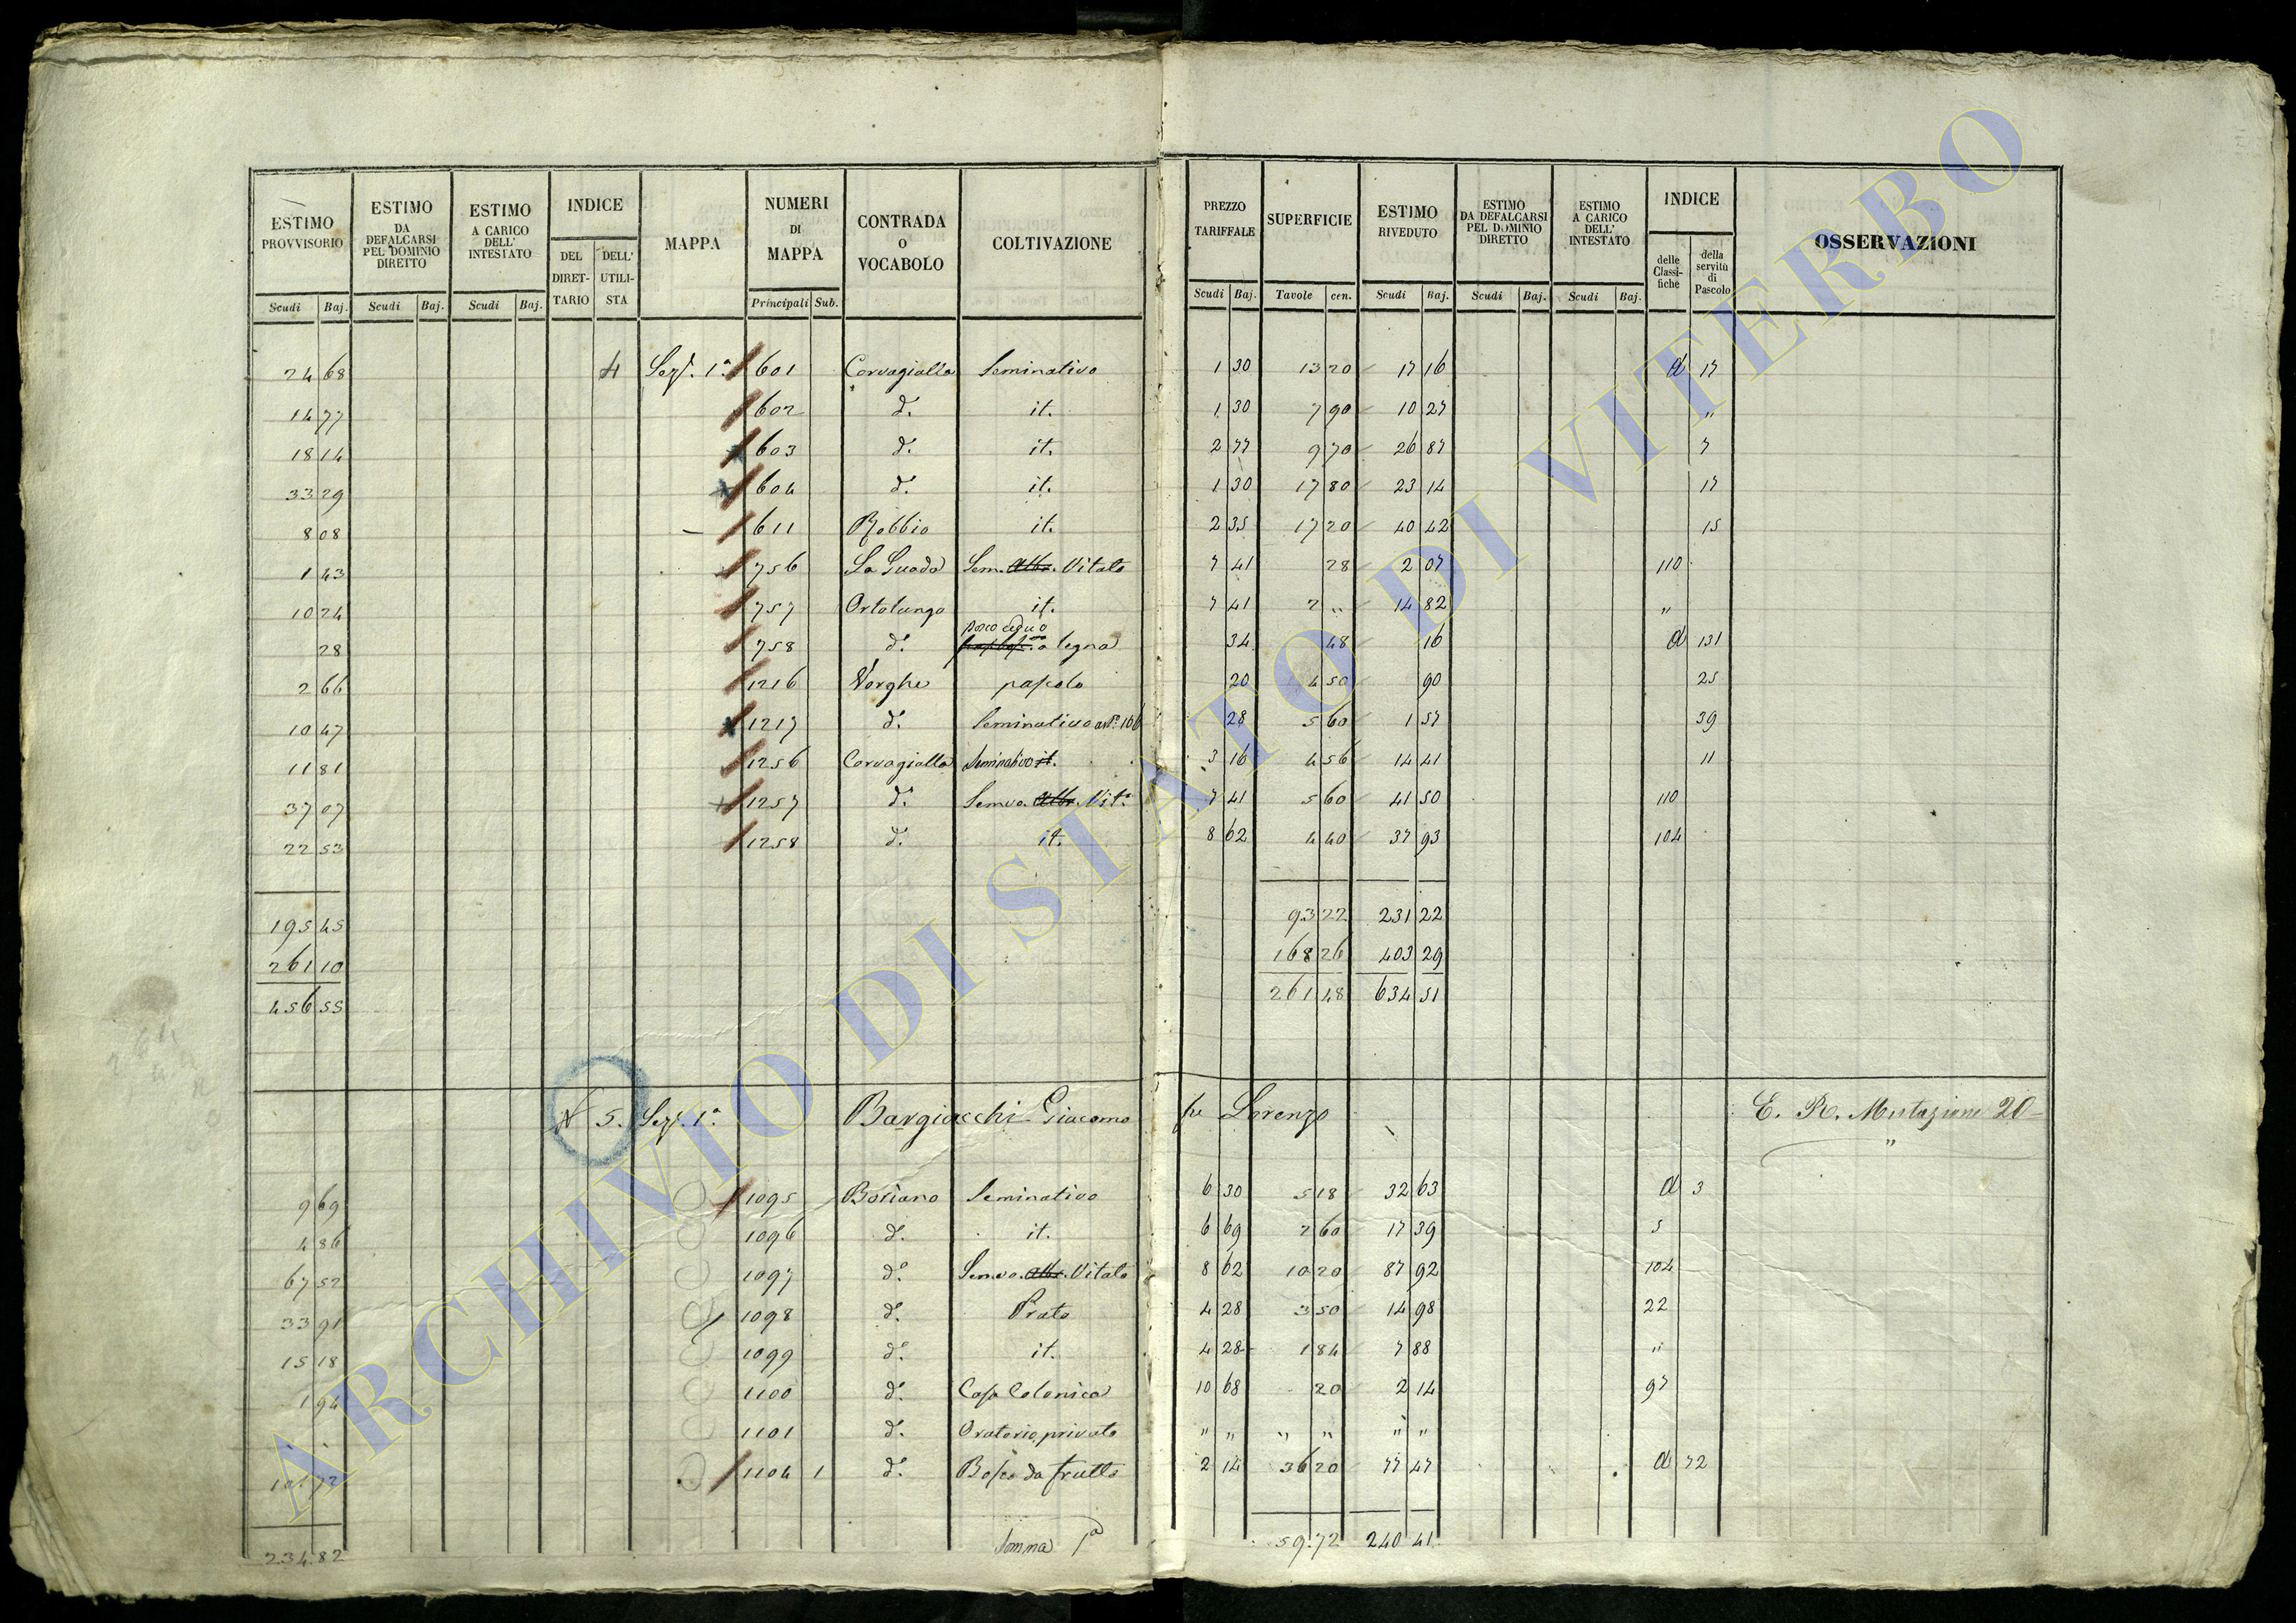 ESTIMO PROVVISORIO Scudi Baj. | ESTIMO DA DEFALCARSI PEL DOMINIO DIRETTO Scudi Baj. | ESTIMO A CARICO DELL' INTESTATO Scudi Baj. | INDICE DEL DIRETTARIO DELL' UTILISTA | MAPPA | NUMERI DI MAPPA Principali Sub. | CONTRADA O VOCABOLO | COLTIVAZIONE | PREZZO TARIFFALE Scudi Baj. | SUPERFICIE Tavole cen. | ESTIMO RIVEDUTO Scudi Baj. | ESTIMO DA DEFALCARSI PEL DOMINIO DIRETTO Scudi Baj. | ESTIMO A CARICO DELL' INTESTATO Scudi Baj. | INDICE delle Classifiche della servitù di Pascolo | OSSERVAZIONI
24 68 4 Sez. 1ª 601 Corvagialla Seminativo 1 30 13 20 17 16 d 17
14 77 602 d.º it. 1 30 7 90 10 27 "
18 14 603 d.º it. 2 77 9 70 26 87 7
33 29 604 d.º it. 1 30 17 80 23 14 17
8 08 611 Robbio it. 2 35 17 20 40 42 15
1 43 756 La Guada Sem. Alb. Vitato 7 41 28 2 07 110
10 24 757 Ortolungo it. 7 41 2 " 14 82 "
28 758 d.º bosco ceduo a legna 34 48 16 d 131
2 66 1216 Vorghe pascolo 20 4 50 90 25
10 47 1217 d.º Seminativo 28 5 60 1 57 39
11 81 1256 Corvagialla Seminativo it. 3 16 4 56 14 41 11
37 07 1257 d.º Semvo. Alb. Vit.º 7 41 5 60 41 50 110
22 53 1258 d.º it. 8 62 4 40 37 93 104
195 45 93 22 231 22
261 10 168 26 403 29
456 55 261 48 634 51
N 5. Sez. 1ª Bargiacchi Giacomo fu Lorenzo E. R. Mutazione 20
"
9 69 1095 Boriano Seminativo 6 30 5 18 32 63 d 3
4 86 1096 d.º it. 6 69 2 60 17 39 5
67 52 1097 d.º Semvo. Alb. Vitato 8 62 10 20 87 92 104
33 91 1098 d.º Prato 4 28 3 50 14 98 22
15 18 1099 d.º it. 4 28 1 84 7 88 "
1 94 1100 d.º Casa Colonica 10 68 20 2 14 97
1101 d.º Oratorio privato " " " " " "
101 72 1104 1 d.º Bosco da frutto 2 14 36 20 77 47 d 72
234 82 Somma 59 72 240 41
ARCHIVIO DI STATO DI VITERBO